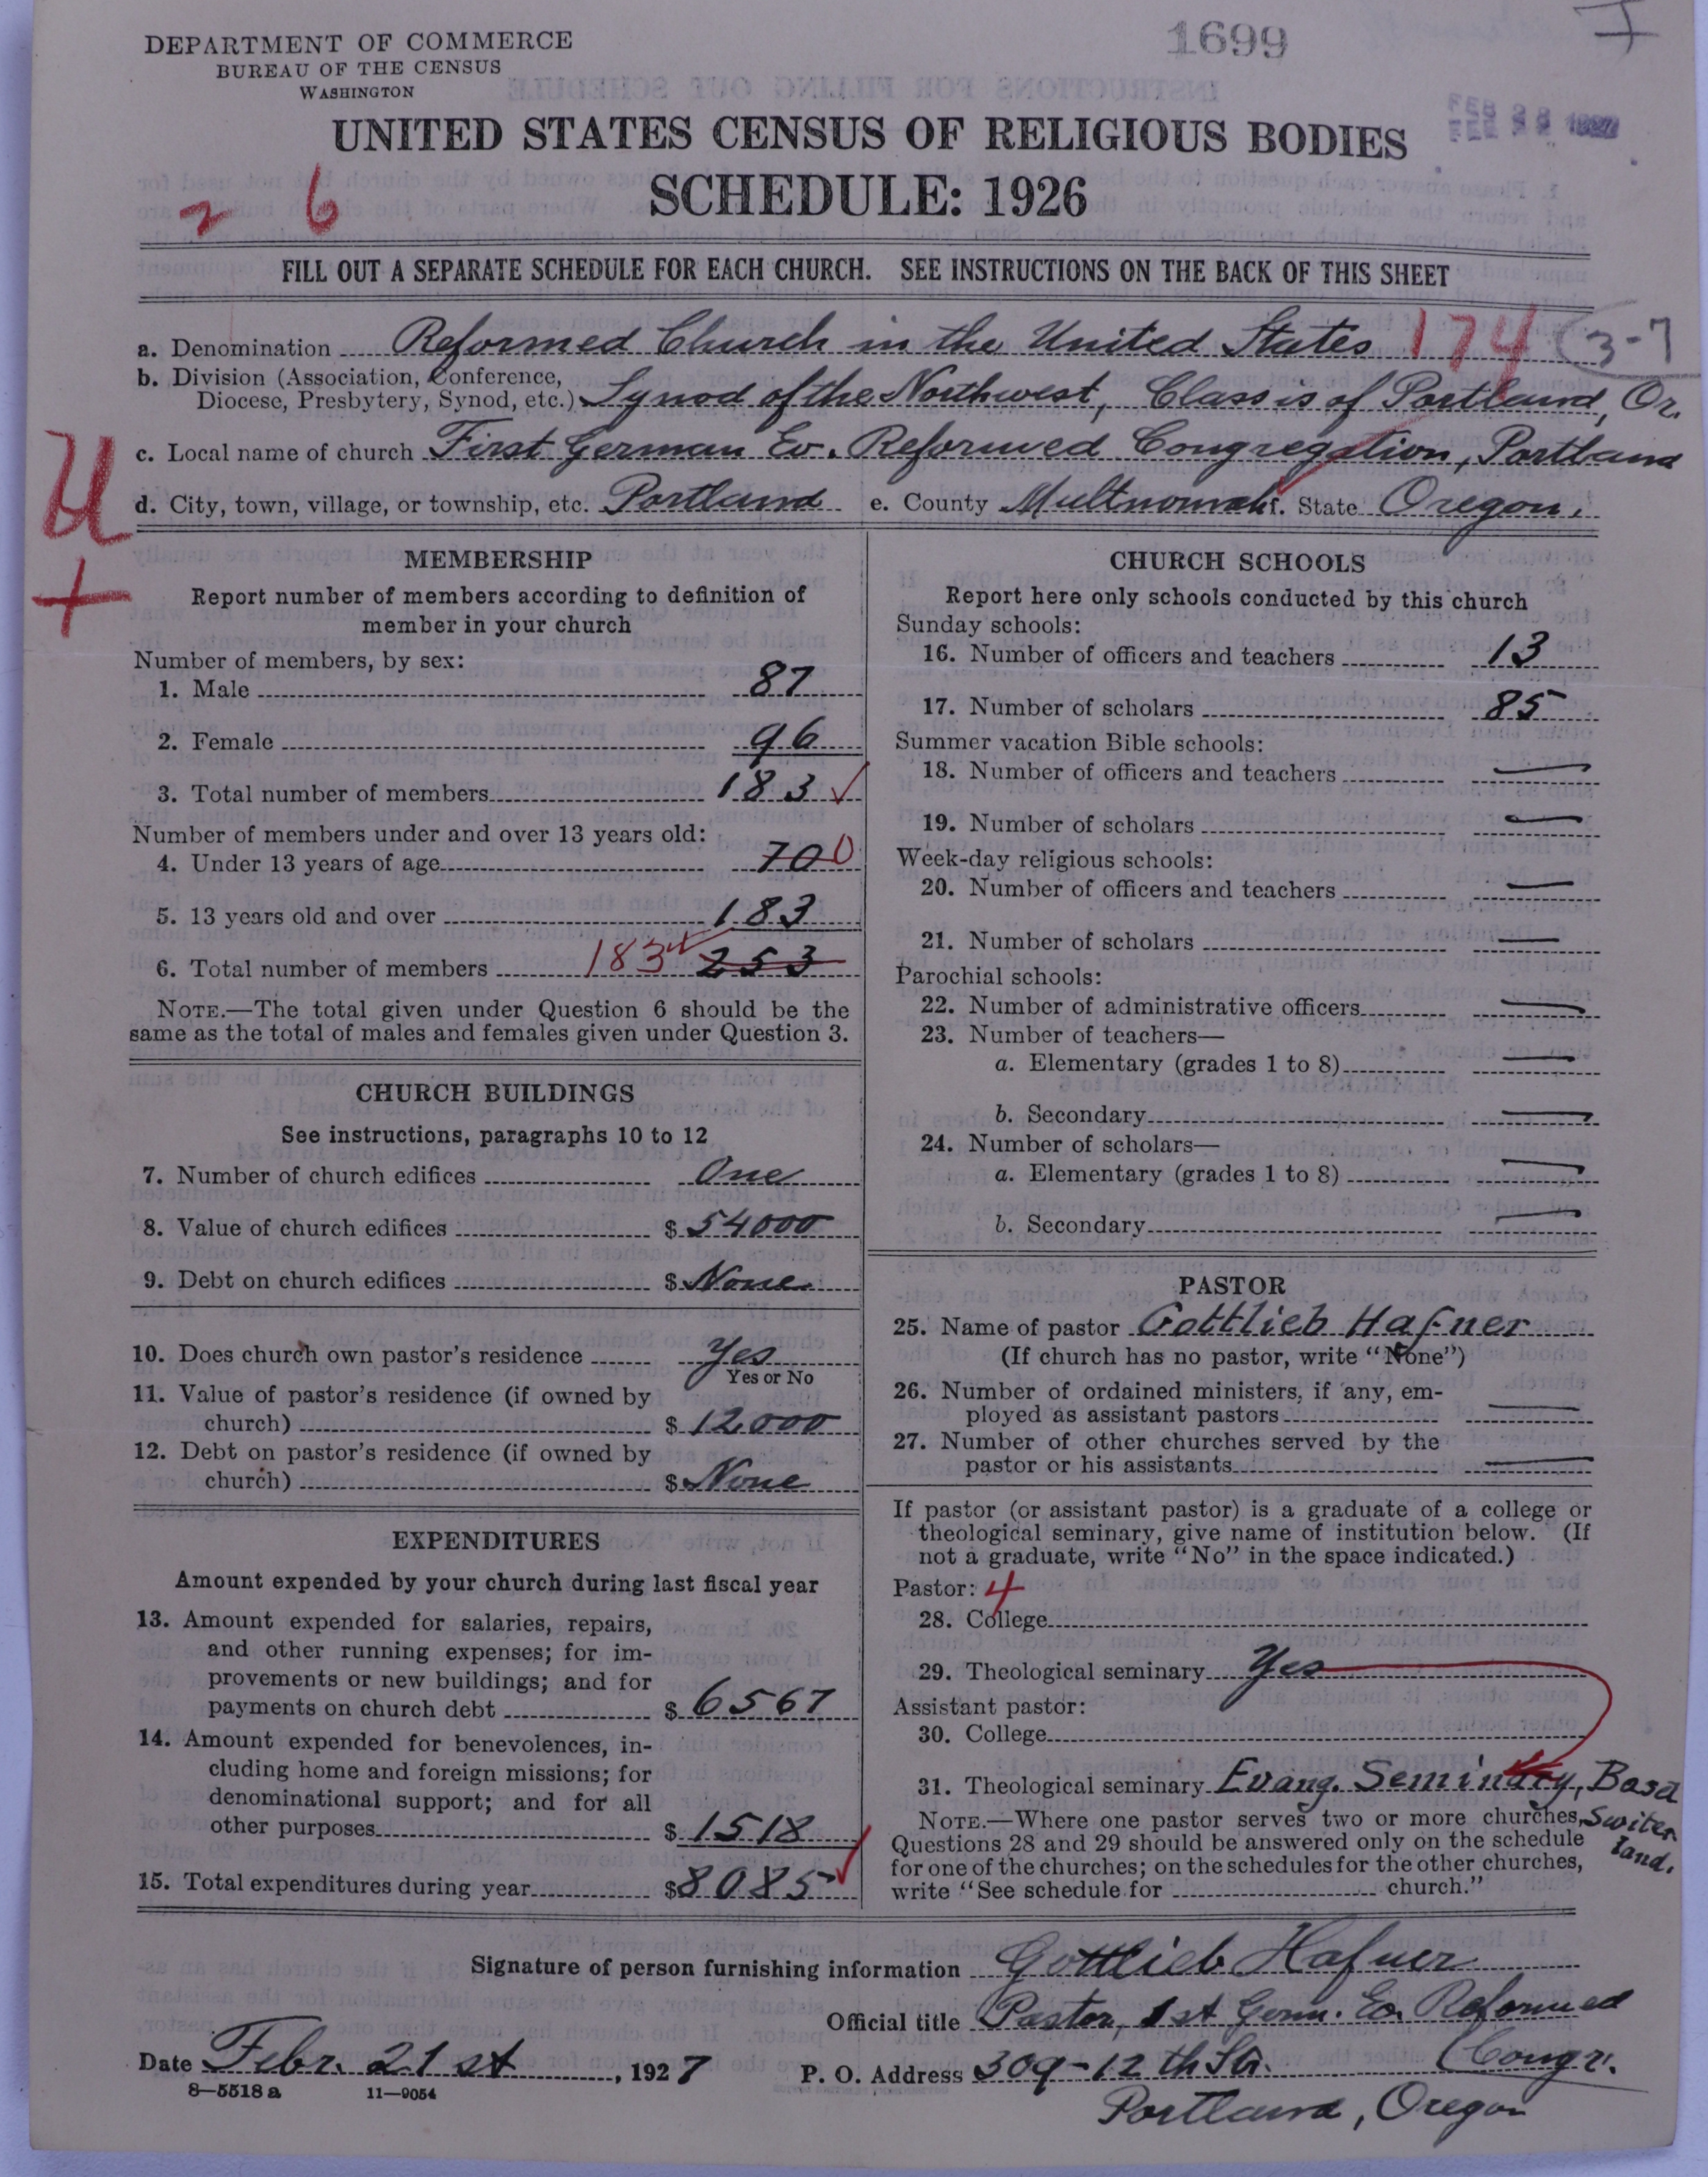 DEPARTMENT OF COMMERCE
BUREAU OF THE CENSUS
WASHINGTON
1699
UNITED STATES CENSUS OF RELIGIOUS BODIES
SCHEDULE: 1926
2 6
FILL OUT A SEPARATE SCHEDULE FOR EACH CHURCH. SEE INSTRUCTIONS ON THE BACK OF THIS SHEET
a. Denomination Reformed Church in the United States 174 3-7
b. Division (Association, Conference,
Diocese, Presbytery, Synod, etc.) Synod of the Northwest, Classis of Portland, Or.
c. Local name of church First German Ev. Reformed Congregation, Portland
d. City, town, village, or township, etc. Portland e. County Multnomah f. State Oregon.
MEMBERSHIP
Report number of members according to definition of
member in your church
Number of members, by sex:
1. Male 87
2. Female 96
3. Total number of members 183 ✓
Number of members under and over 13 years old:
4. Under 13 years of age 70 0
5. 13 years old and over 183
6. Total number of members 183 253
NOTE.—The total given under Question 6 should be the
same as the total of males and females given under Question 3.
CHURCH BUILDINGS
See instructions, paragraphs 10 to 12
7. Number of church edifices One
8. Value of church edifices $ 54000
9. Debt on church edifices $ None
10. Does church own pastor's residence Yes
Yes or No
11. Value of pastor's residence (if owned by
church) $ 12000
12. Debt on pastor's residence (if owned by
church) $ None
EXPENDITURES
Amount expended by your church during last fiscal year
13. Amount expended for salaries, repairs,
and other running expenses; for im-
provements or new buildings; and for
payments on church debt $ 6567
14. Amount expended for benevolences, in-
cluding home and foreign missions; for
denominational support; and for all
other purposes $ 1518
15. Total expenditures during year $ 8085 ✓
CHURCH SCHOOLS
Report here only schools conducted by this church
Sunday schools:
16. Number of officers and teachers 13
17. Number of scholars 85
Summer vacation Bible schools:
18. Number of officers and teachers —
19. Number of scholars —
Week-day religious schools:
20. Number of officers and teachers —
21. Number of scholars —
Parochial schools:
22. Number of administrative officers —
23. Number of teachers—
a. Elementary (grades 1 to 8) —
b. Secondary —
24. Number of scholars—
a. Elementary (grades 1 to 8) —
b. Secondary —
PASTOR
25. Name of pastor Gottlieb Hafner
(If church has no pastor, write "None")
26. Number of ordained ministers, if any, em-
ployed as assistant pastors —
27. Number of other churches served by the
pastor or his assistants —
If pastor (or assistant pastor) is a graduate of a college or
theological seminary, give name of institution below. (If
not a graduate, write "No" in the space indicated.)
Pastor: 4
28. College
29. Theological seminary Yes
Assistant pastor:
30. College
31. Theological seminary Evang. Seminary, Basel
Switer
land.
NOTE.—Where one pastor serves two or more churches,
Questions 28 and 29 should be answered only on the schedule
for one of the churches; on the schedules for the other churches,
write "See schedule for church."
Signature of person furnishing information Gottlieb Hafner
Official title Pastor, 1st Germ. Ev. Reformed
Congr.
Date Febr. 21 st, 1927 P. O. Address 309-12th Str.
Portland, Oregon
8—5518 a 11—9054